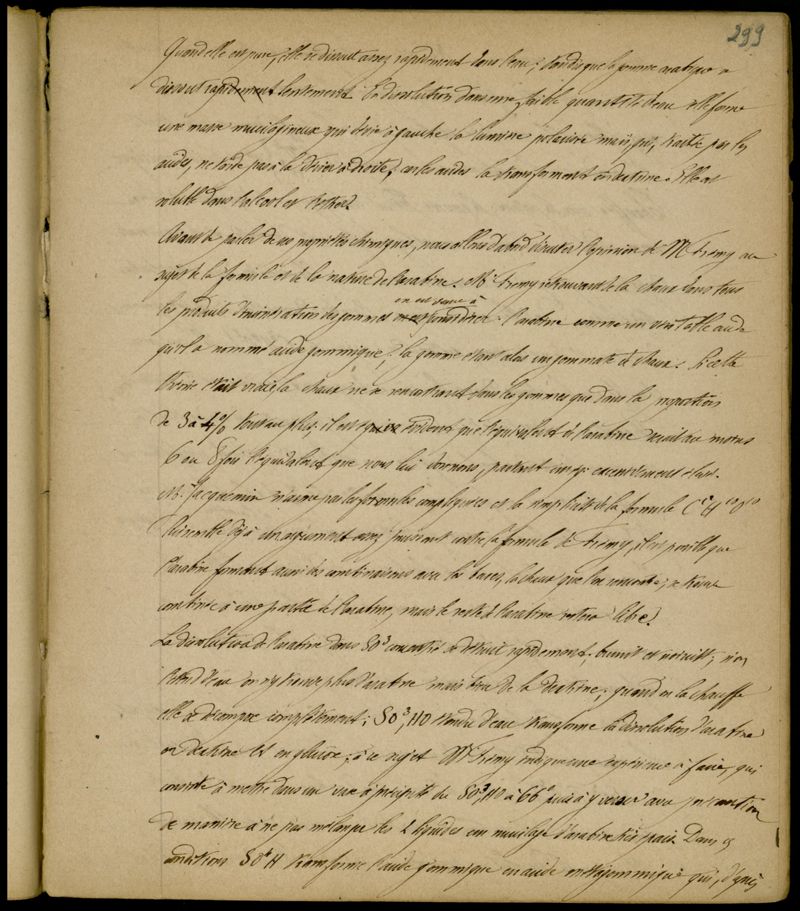 299
Quand elle est pure, elle se dissout assez rapidement dans l'eau; tandis que la gomme arabique se
dissout rapidement lentement. En dissolution dans une faible quantité d'eau elle forme
une masse mucilagineuse qui dévie à gauche la lumière polarisée mais qui, traitée par les
acides, ne tarde pas à la dévier à droite, car les acides la transforment en dextrine. Elle est
insoluble dans l'alcool et l'éther.
Avant de parler de ses propriétés chimiques, nous allons d'abord discuter l'opinion de Mr Fremy au
sujet de la formule et de la nature de l'arabine. Mr Fremy retrouvant de la chaux dans tous
les produits d'incinération des gommes en est venu à considérer l'arabine comme un véritable acide
qu'il a nommé acide gommique; la gomme étant alors un gommate de chaux. Si cette
théorie était vraie la chaux ne se rencontrant dans les gommes que dans la proportion
de 3 à 4% tout au plus, il est évident que l'équivalent de l'arabine serait au moins
6 ou 8 fois l'équivalent que nous lui donnons, partant
Mr Jacquemin n'aime pas les formules compliquées et la simplicité de la formule
lui semble déjà un argument assez puissant contre la formule de Fremy, il est possible que
l'arabine formant aussi des combinaisons avec les bases, la chaux que l'on rencontre, se trouve
combinée à une partie de l'arabine, mais le reste de l'arabine reste libre.
La dissolution de l'arabine dans SO3 concentré se détruit rapidement, brunit et noircit; si on
l'étend d'eau on n'y trouve plus d'arabine mais bien de la dextrine; quand on la chauffe
elle se décompose complètement; SO3,HO étendu d'eau transforme la dissolution d'arabine
en dextrine et en glucose; à ce sujet Mr Fremy indique une expérience à faire, qui
consiste à mettre dans un vase à précipité du SO3HO à 66° puis à y verser avec précaution
de manière à ne pas mélanger les 2 liquides un mucilage d'arabine très épais. Dans ces
conditions transforme l'acide gommique en acide métagommique qui, d'après